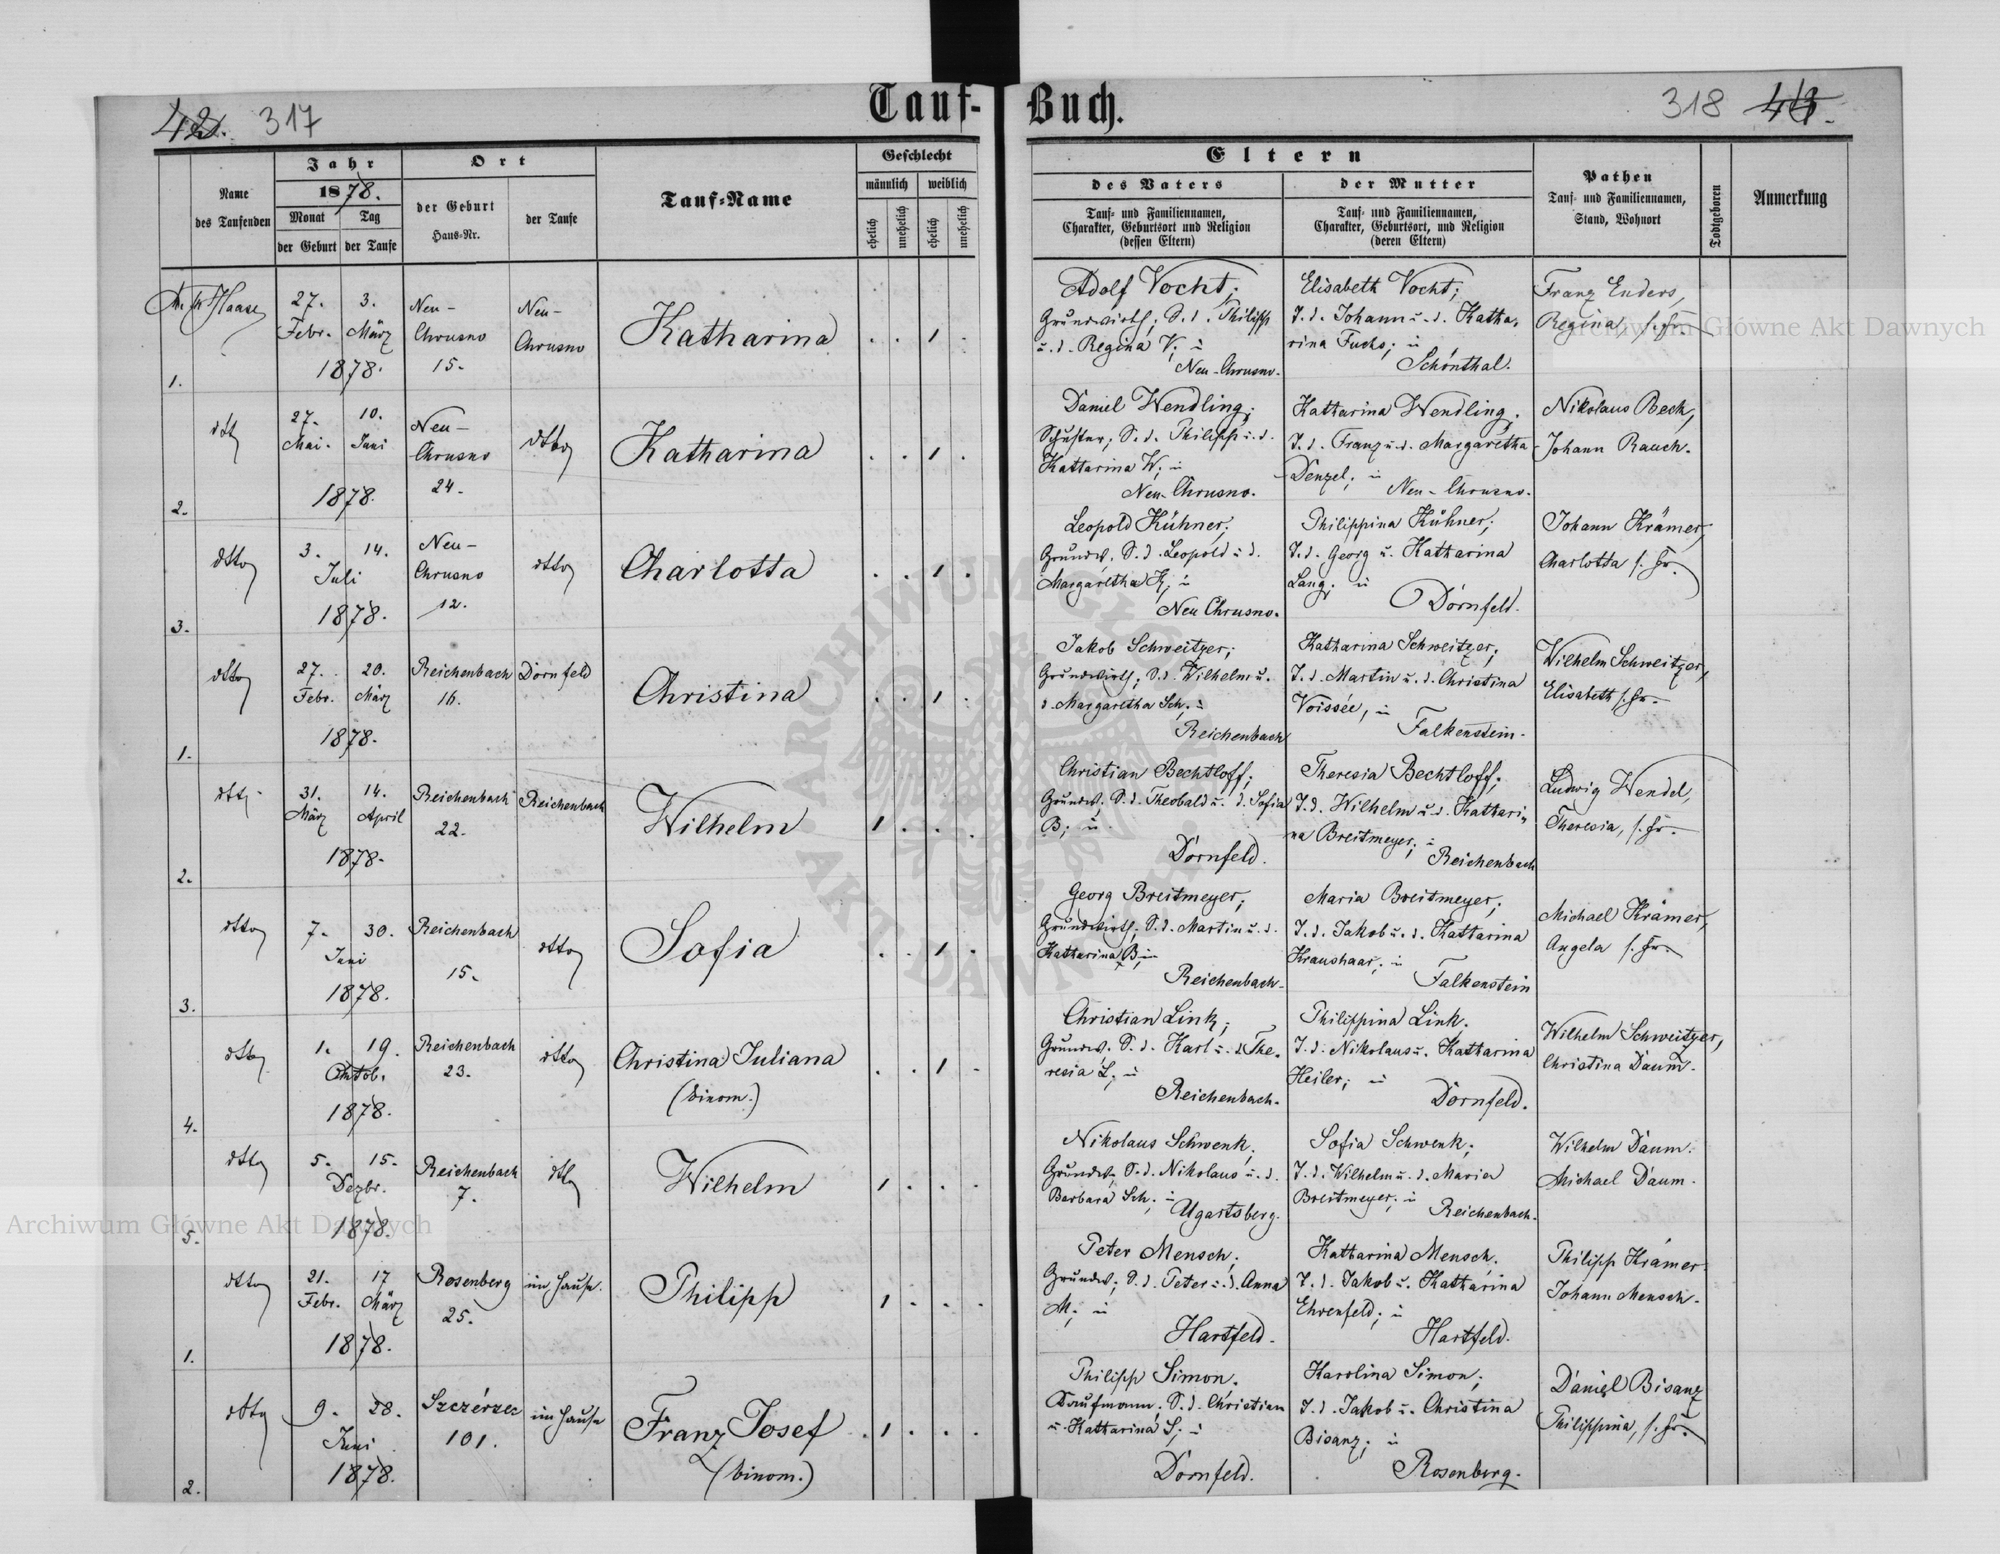 42. 317
Tauf-Buch.
318 43.
Name
des Taufenden
Jahr
1878.
Monat Tag
der Geburt der Taufe
Ort
der Geburt
Haus-Nr.
der Taufe
Tauf-Name
Geschlecht
männlich weiblich
ehelich unehelich ehelich unehelich
Eltern
des Vaters
Tauf- und Familiennamen,
Charakter, Geburtsort und Religion
(dessen Eltern)
der Mutter
Tauf- und Familiennamen,
Charakter, Geburtsort, und Religion
(deren Eltern)
Pathen
Tauf- und Familiennamen,
Stand, Wohnort
Todtgeboren
Anmerkung
1.
Haase
27. 3.
Febr. März
1878.
Neu-
Chrusno
15.
Neu-
Chrusno
Katharina
. . 1 .
Adolf Vocht;
Grundwirth; S. d. Philipp
u. d. Regina V; in
Neu-Chrusno.
Elisabeth Vocht;
T. d. Johann u. d. Katha-
rina Fuchs; in
Schönthal.
Franz Enders,
Regina, s. Fr.
2.
dtto
27. 10.
Mai. Juni
1878.
Neu-
Chrusno
24.
dtto
Katharina
. . 1 .
Daniel Wendling;
Schuster; S. d. Philipp u. d.
Katharina W; in
Neu-Chrusno.
Katharina Wendling;
T. d. Franz u. d. Margaretha
Denzel; in
Neu-Chrusno.
Nikolaus Beck,
Johann Rauch.
3.
dtto
3. 14.
Juli
1878.
Neu-
Chrusno
12.
dtto
Charlotta
. . 1 .
Leopold Kühner;
Grundw. S. d. Leopold u. d.
Margaretha K; in
Neu Chrusno.
Philippina Kühner;
T. d. Georg u. Katharina
Lang; in
Dornfeld.
Johann Krämer,
Charlotta s. Fr.
1.
dtto
27. 20.
Febr. März
1878.
Reichenbach
16.
Dornfeld
Christina
. . 1 .
Jakob Schweitzer;
Grundwirth; S. d. Wilhelm u.
d. Margaretha Sch; in
Reichenbach
Katharina Schweitzer;
T. d. Martin u. d. Christina
Voissée, in
Falkenstein.
Wilhelm Schweitzer,
Elisabeth s. Fr.
2.
dtto
31. 14.
März April
1878.
Reichenbach
22.
Reichenbach
Wilhelm
1 . . .
Christian Bechtloff;
Grundw. S. d. Theobald u. d. Sofia
B; in
Dornfeld.
Theresia Bechtloff;
T. d. Wilhelm u. d. Kathari-
na Breitmeyer; in
Reichenbach
Ludwig Wendel,
Theresia, s. Fr.
3.
dtto
7. 30.
Juni
1878.
Reichenbach
15.
dtto
Sofia
. . 1 .
Georg Breitmeyer;
Grundwirth; S. d. Martin u. d.
Katharina B; in
Reichenbach.
Maria Breitmeyer;
T. d. Jakob u. d. Katharina
Kraushaar; in
Falkenstein
Michael Krämer,
Angela s. Fr.
4.
dtto
1. 19.
Oktob.
1878.
Reichenbach
23.
dtto
Christina Juliana
(binom.)
. . 1 .
Christian Link;
Grundw. S. d. Karl u. d. The-
resia L; in
Reichenbach.
Philippina Link;
T. d. Nikolaus u. Katharina
Heiler; in
Dornfeld.
Wilhelm Schweitzer,
Christina Daum.
5.
dtto
5. 15.
Dezbr.
1878.
Reichenbach
7.
dtto
Wilhelm
1 . . .
Nikolaus Schwenk;
Grundw; S. d. Nikolaus u. d.
Barbara Sch; in
Ugartsberg.
Sofia Schwenk;
T. d. Wilhelm u. d. Maria
Breitmeyer; in
Reichenbach.
Wilhelm Daum.
Michael Daum.
1.
dtto
21. 17
Febr. März
1878.
Rosenberg
25.
im Hause.
Philipp
1 . . .
Peter Mensch;
Grundw; S. d. Peter u. d. Anna
M; in
Hartfeld.
Katharina Mensch;
T. d. Jakob u. Katharina
Ehrenfeld; in
Hartfeld.
Philipp Krämer.
Johann Mensch.
2.
dtto
9. 28.
Juni
1878.
Szczérzec
101.
im Hause
Franz Josef
(binom.)
1 . . .
Philipp Simon.
Kaufmann; S. d. Christian
u. Katharina S; in
Dornfeld.
Karolina Simon;
T. d. Jakob u. Christina
Bisanz; in
Rosenberg.
Daniel Bisanz
Philippina, s. Fr.
Archiwum Główne Akt Dawnych
Archiwum Główne Akt Dawnych